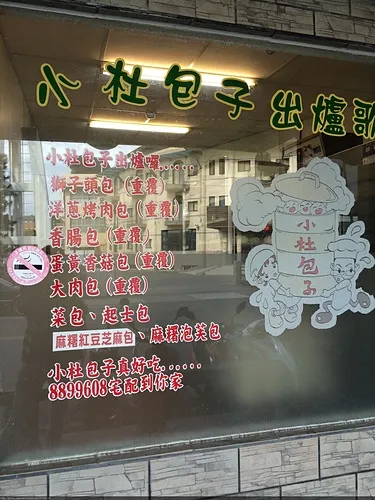 小杜包子出爐
小杜包子出爐囉......
獅子頭包(重覆)
洋蔥烤肉包(重覆)
香腸包(重覆)
蛋黃香菇包(重覆)
大肉包(重覆)
菜包、起士包
麻糬紅豆芝麻包、麻糬泡芙包
小杜包子真好吃......
8899608宅配到你家
小杜包子